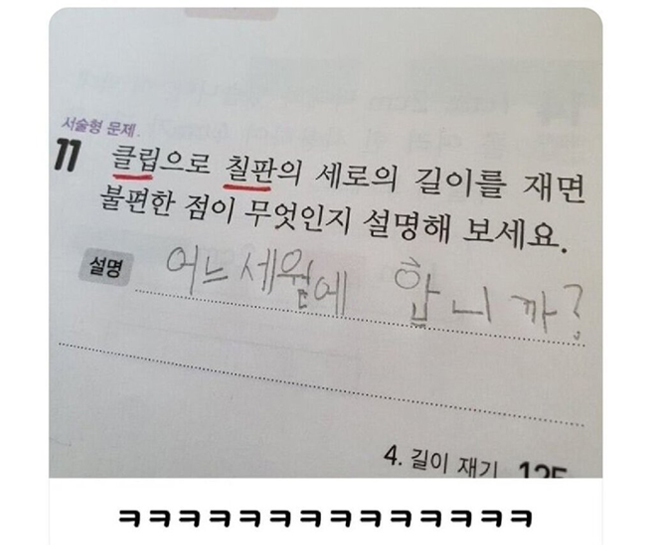 서술형 문제
11 클립으로 칠판의 세로의 길이를 재면
불편한 점이 무엇인지 설명해 보세요.
설명 어느세월에 합니까?
4. 길이 재기 125
ㅋㅋㅋㅋㅋㅋㅋㅋㅋㅋㅋㅋㅋㅋ